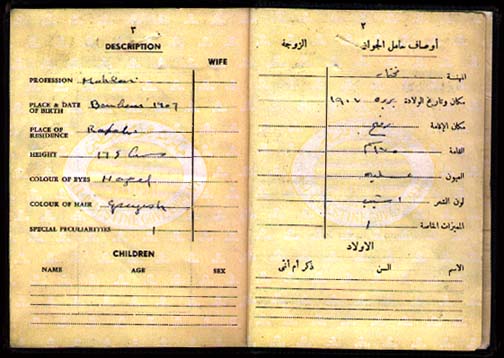 ٣
DESCRIPTION
WIFE
PROFESSION Mukhtar
PLACE & DATE OF BIRTH 1907
PLACE OF RESIDENCE Rafah
HEIGHT 175 Cms
COLOUR OF EYES Hazel
COLOUR OF HAIR Greyish
SPECIAL PECULIARITIES /
CHILDREN
NAME AGE SEX
٢
أوصاف حامل الجواز الزوجة
المهنة مختار
مكان وتاريخ الولادة ١٩٠٧
مكان الإقامة رفح
القامة
العيون عسلية
لون الشعر أشيب
الميزات الخاصة /
الاولاد
الاسم السن ذكر أم أنثى